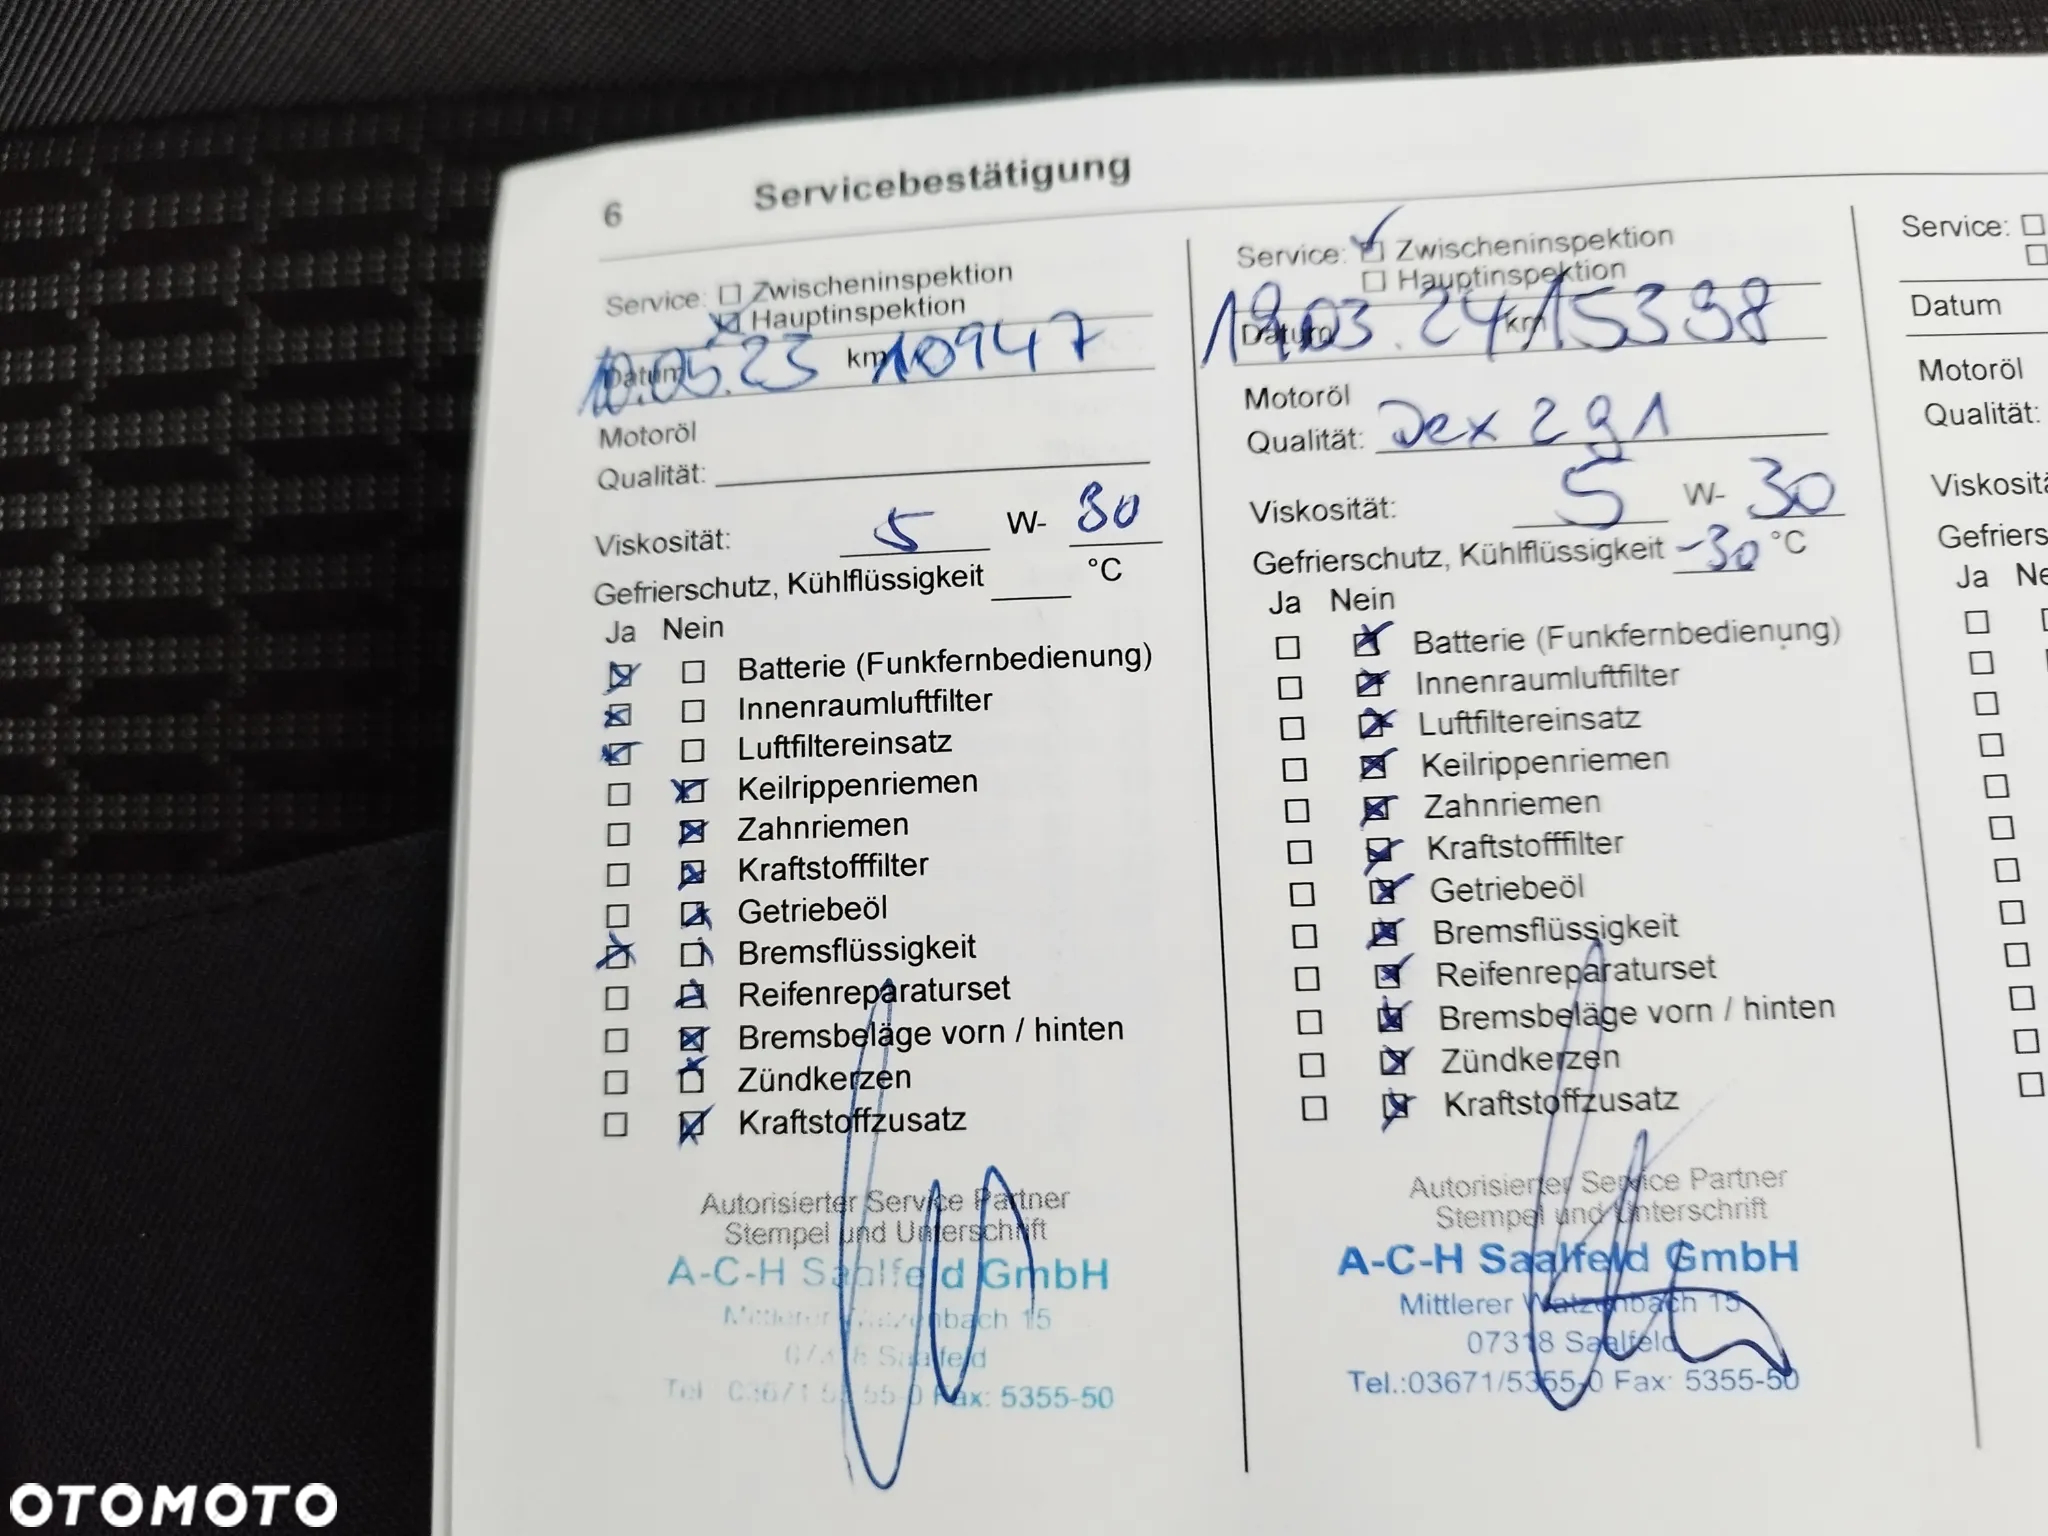 6 Servicebestätigung
Service: Zwischeninspektion
Hauptinspektion
Datum 10.05.23 km 10947
Motoröl
Qualität:
Viskosität: 5 W- 30
Gefrierschutz, Kühlflüssigkeit °C
Ja Nein
Batterie (Funkfernbedienung)
Innenraumluftfilter
Luftfiltereinsatz
Keilrippenriemen
Zahnriemen
Kraftstofffilter
Getriebeöl
Bremsflüssigkeit
Reifenreparaturset
Bremsbeläge vorn / hinten
Zündkerzen
Kraftstoffzusatz
Autorisierter Service Partner
Stempel und Unterschrift
A-C-H Saalfeld GmbH
Mittlerer Watzenbach 15
07318 Saalfeld
Tel.: 03671/5355-0 Fax: 5355-50
Service: Zwischeninspektion
Hauptinspektion
Datum 19.03.24 km 15398
Motoröl
Qualität: Dex 2 g1
Viskosität: 5 W- 30
Gefrierschutz, Kühlflüssigkeit -30 °C
Ja Nein
Batterie (Funkfernbedienung)
Innenraumluftfilter
Luftfiltereinsatz
Keilrippenriemen
Zahnriemen
Kraftstofffilter
Getriebeöl
Bremsflüssigkeit
Reifenreparaturset
Bremsbeläge vorn / hinten
Zündkerzen
Kraftstoffzusatz
Autorisierter Service Partner
Stempel und Unterschrift
A-C-H Saalfeld GmbH
Mittlerer Watzenbach 15
07318 Saalfeld
Tel.:03671/5355-0 Fax: 5355-50
Service:
Datum
Motoröl
Qualität:
Viskositä
Gefriers
Ja Ne
OTOMOTO